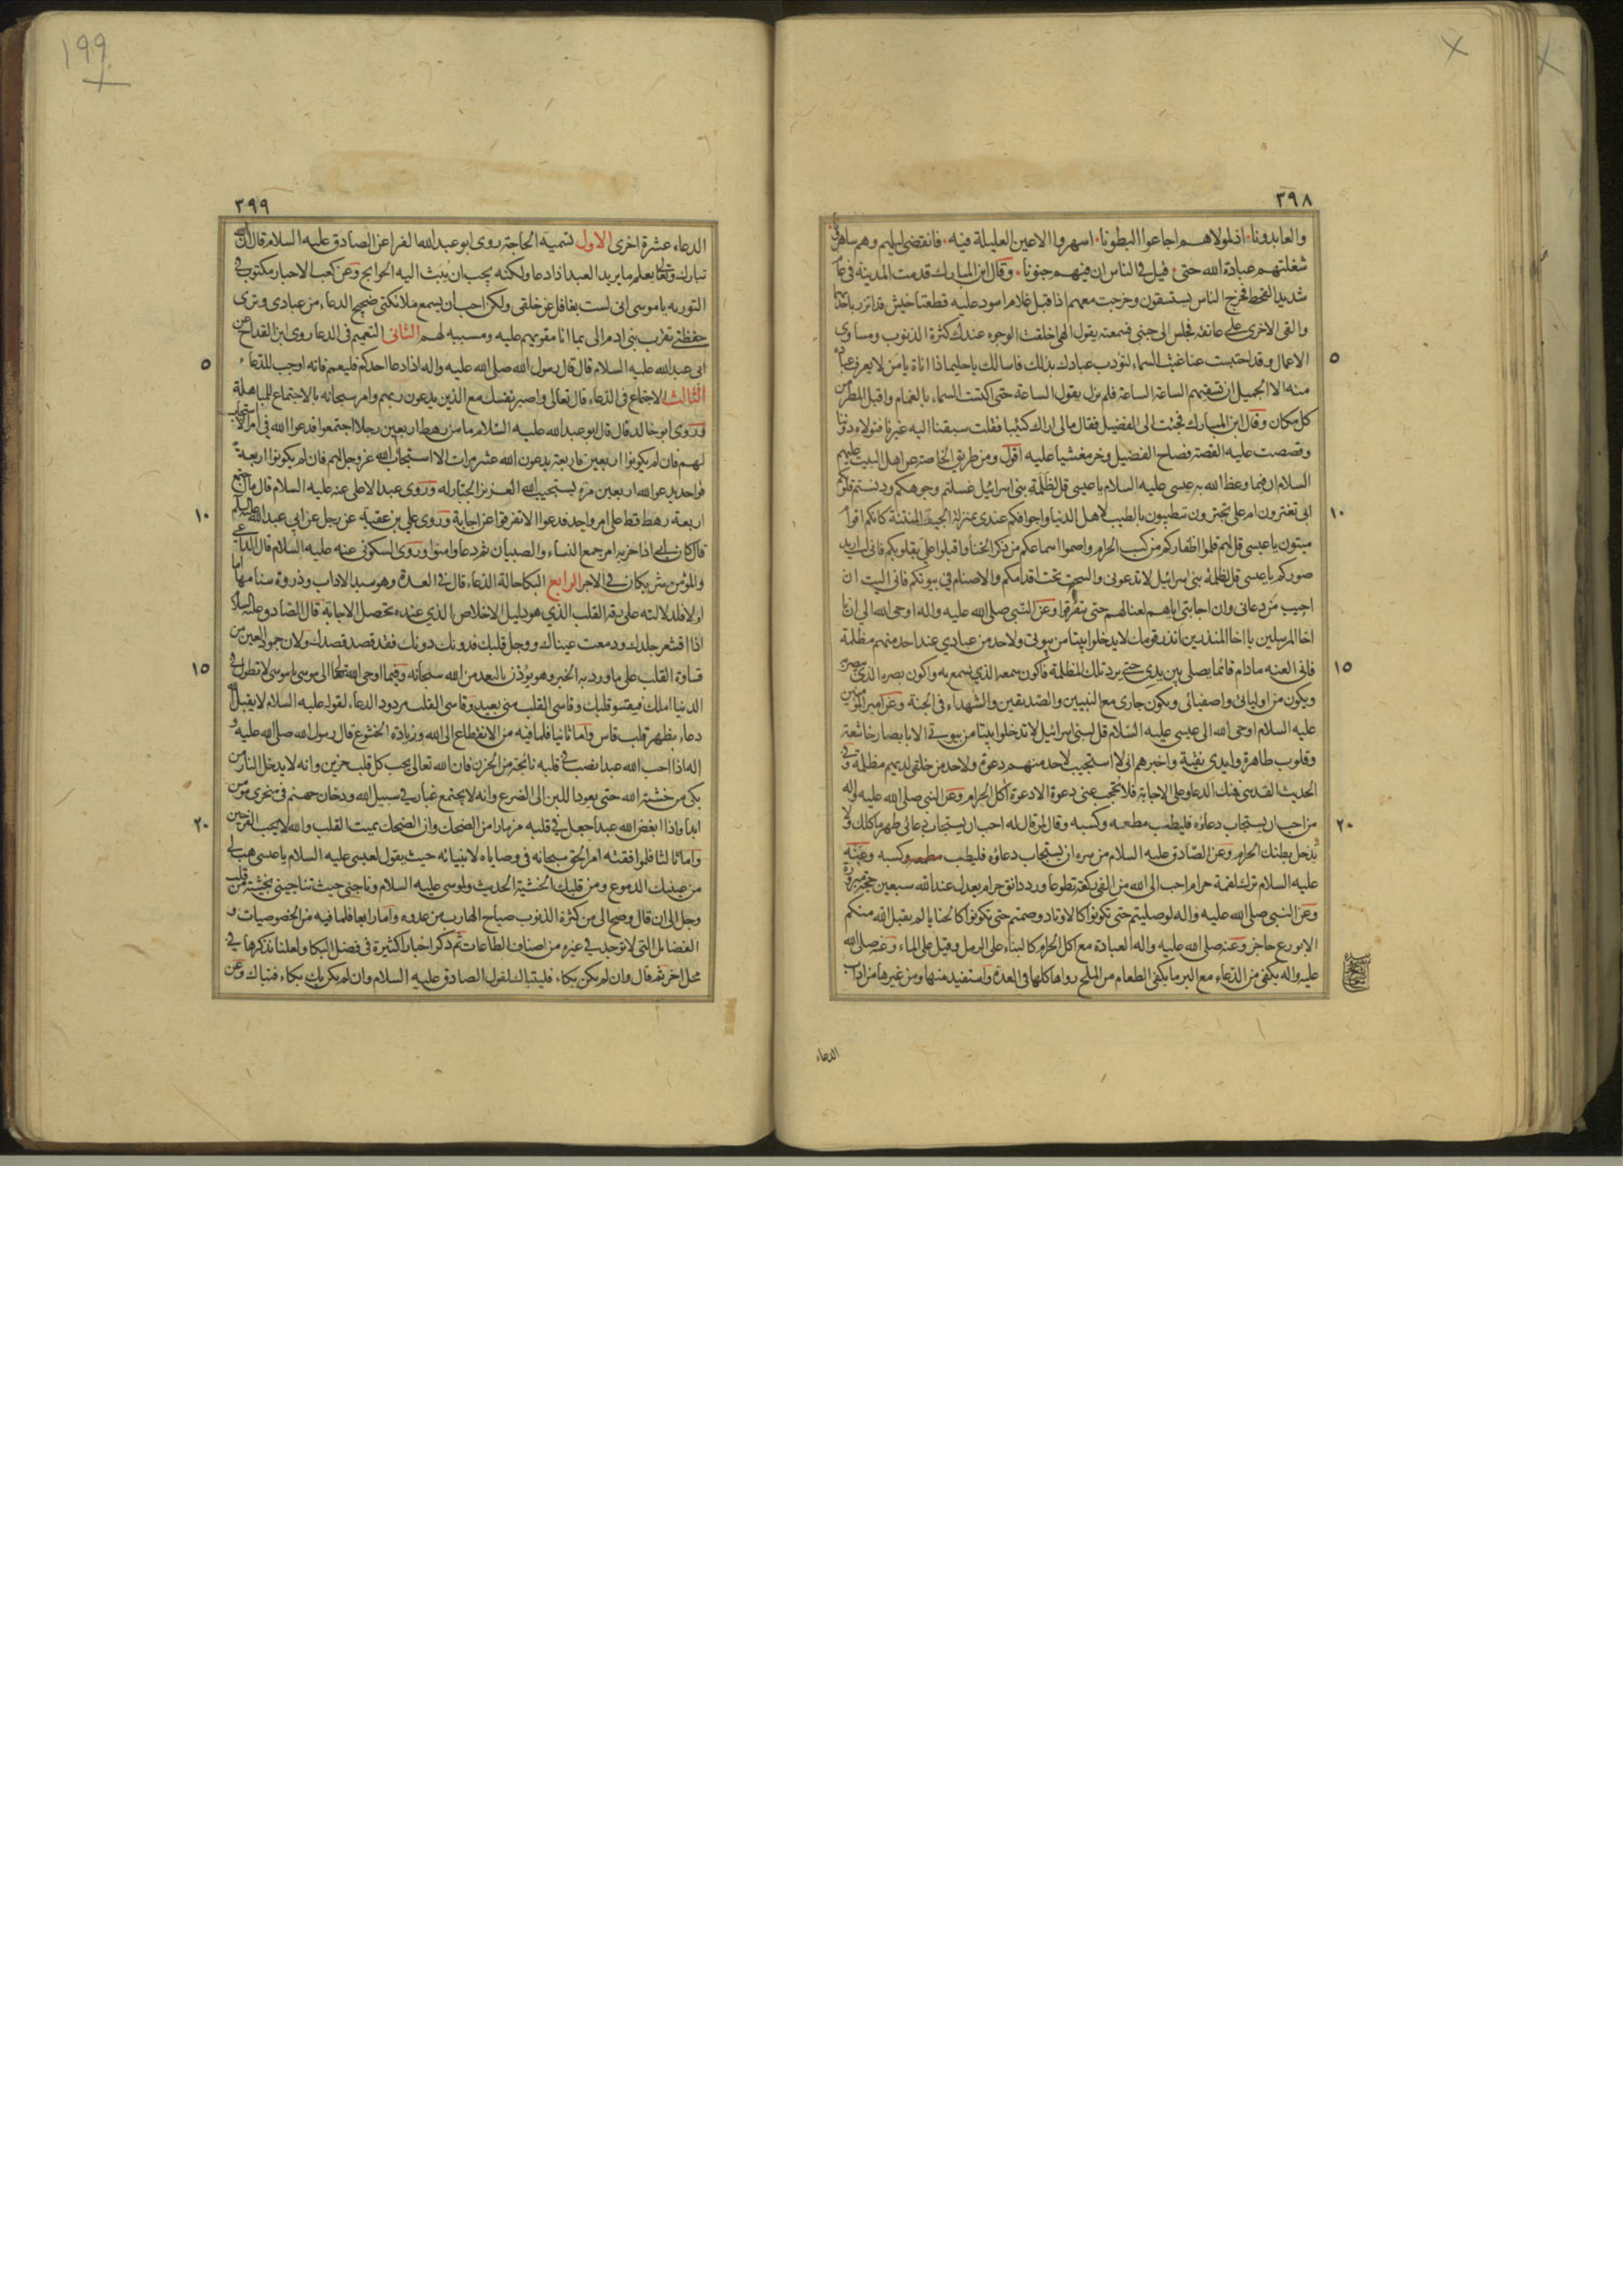 ٣٩٨
والعابدونا اذ لولاهم اجاعوا البطونا اسهروا الاعين العليلة فيه فانقضى ليلهم وهم ساهرون
شغلتهم عبادة الله حتى قيل في الناس ان فيهم جنونا وقال ابن المبارك قدمت المدينة في عام
شديد القحط فخرج الناس يستسقون وخرجت معهم اذ اقبل غلام اسود عليه قطعتا خيش قد اتزر باحديهما
والقى الاخرى على عاتقه فجلس الى جنبي فسمعته يقول الهي اخلقت الوجوه عندك كثرة الذنوب ومساوي
الاعمال وقد احتبست عنا غيث السماء لتؤدب عبادك بذلك فاسالك يا حليما ذا اناة يا من لا يعرف عباده
منه الا الجميل ان تسقيهم الساعة الساعة فلم يزل يقول الساعة حتى اكتست السماء بالغمام واقبل المطر من
كل مكان وقال ابن المبارك فجئت الى الفضيل فقال مالي اراك كئيبا فقلت سبقنا اليه غيرنا فتولاه دوننا
وقصصت عليه القصة فصاح الفضيل وخر مغشيا عليه اقول ومن طريق الخاصة عن اهل البيت عليهم
السلام ان فيما وعظ الله به عيسى عليه السلام يا عيسى قل لظلمة بني اسرائيل غسلتم وجوهكم ودنستم قلوبكم
ابي تغترون ام علي تجترون تتطيبون بالطيب لاهل الدنيا واجوافكم عندي بمنزلة الجيف المنتنة كانكم اقوام
ميتون يا عيسى قل لهم قلموا اظفاركم من كسب الحرام واصموا اسماعكم من ذكر الخنا واقبلوا علي بقلوبكم فاني لست اريد
صوركم يا عيسى قل لظلمة بني اسرائيل لا تدعوني والسحت تحت اقدامكم والاصنام في بيوتكم فاني اليت ان
اجيب من دعاني وان اجابتي اياهم لعنا لهم حتى يتفرقوا وعن النبي صلى الله عليه واله اوحى الله الي ان يا
اخا المرسلين يا اخا المنذرين انذر قومك لا يدخلوا بيتا من بيوتي ولاحد من عبادي عند احد منهم مظلمة
فاني العنه ما دام قائما يصلي بين يدي حتى يرد تلك المظلمة فاكون سمعه الذي يسمع به واكون بصره الذي يبصر به
ويكون من اوليائي واصفيائي ويكون جاري مع النبيين والصديقين والشهداء في الجنة وعن امير المؤمنين
عليه السلام اوحى الله الى عيسى عليه السلام قل لبني اسرائيل لا تدخلوا بيتا من بيوتي الا بابصار خاشعة
وقلوب طاهرة وايدي نقية واخبرهم اني لا استجيب لاحد منهم دعوة ولاحد من خلقي لديهم مظلمة وفي
الحديث القدسي فمنك الدعا وعلي الاجابة فلا تحجب عني دعوة الا دعوة اكل الحرام وعن النبي صلى الله عليه واله
من احب ان يستجاب دعاؤه فليطيب مطعمه وكسبه وقال لمن قال له احب ان يستجاب دعائي طهر ماكلك ولا
يدخل بطنك الحرام وعن الصادق عليه السلام من سره ان يستجاب دعاؤه فليطيب مطعمه وكسبه وعنه
عليه السلام ترك لقمة حرام احب الى الله من الفي ركعة تطوعا ورد دانق حرام يعدل عند الله سبعين حجة مبرورة
وعن النبي صلى الله عليه واله لو صليتم حتى تكونوا كالاوتاد وصمتم حتى تكونوا كالحنايا لم يقبل الله منكم
الا بورع حاجز وعنه صلى الله عليه واله العبادة مع اكل الحرام كالبناء على الرمل وقيل على الماء وعنه صلى الله
عليه واله يكفي من الدعاء مع البر ما يكفي الطعام من الملح رواها كلها في العدة واستفيد منها ومن غيرها من اداب
الدعاء
٥
١٠
١٥
٢٠
٣٩٩
الدعاء عشرة اخرى الاول تسمية الحاجة روى ابو عبد الله الفرا عن الصادق عليه السلام قال ان الله
تبارك وتعالى يعلم ما يريد العبد اذا دعا ولكنه يحب ان يبث اليه الحوايج وعن كعب الاحبار مكتوب في
التورية يا موسى اني لست بغافل عن خلقي ولكن احب ان يسمع ملائكتي ضجيج الدعاء من عبادي وترى
حفظتي تقرب بني ادم الي بما انا مقويهم عليه ومسببه لهم الثاني التعميم في الدعا روى ابن القداح عن
ابي عبد الله عليه السلام قال قال رسول الله صلى الله عليه واله اذا دعا احدكم فليعم فانه اوجب للدعاء
الثالث الاجتماع في الدعاء قال تعالى واصبر نفسك مع الذين يدعون ربهم وامر سبحانه بالاجتماع للمباهلة
وروى ابو خالد قال قال ابو عبد الله عليه السلام ما من رهط اربعين رجلا اجتمعوا فدعوا الله في امر الا استجاب
لهم فان لم يكونوا اربعين فاربعة يدعون الله عشر مرات الا استجاب الله عز وجل لهم فان لم يكونوا اربعة
فواحد يدعو الله اربعين مرة يستجيب الله العزيز الجبار له وروى عبد الاعلى عنه عليه السلام قال ما اجتمع
اربعة رهط قط على امر واحد فدعوا الا تفرقوا عن اجابة وروى علي بن عقبة عن رجل عن ابي عبد الله عليه السلم
قال كان ابي اذا حزبه امر جمع النساء والصبيان ثم دعا وامنوا وروى السكوني عنه عليه السلام قال الداعي
والمؤمن شريكان في الاجر الرابع البكا حالة الدعاء قال في العدة وهو سيد الاداب وذروة سنامها اما
اولا فلدلالته على رقة القلب الذي هو دليل الاخلاص الذي عنده تحصل الاجابة قال الصادق عليه السلام
اذا اقشعر جلدك ودمعت عيناك ووجل قلبك فدونك دونك فقد قصد قصدك ولان جمود العين من
قساوة القلب على ما ورد به الخبر وهو يؤذن بالبعد من الله سبحانه وفيما اوحى الله تعالى الى موسى يا موسى لا تطول في
الدنيا املك فيقسو قلبك وقاسي القلب مني بعيد وقاسي القلب مردود الدعاء لقوله عليه السلام لا يقبل الله
دعاء بظهر قلب قاس واما ثانيا فلما فيه من الانقطاع الى الله وزيادة الخشوع قال رسول الله صلى الله عليه و
اله اذا احب الله عبدا نصب في قلبه نائحة من الحزن فان الله تعالى يحب كل قلب حزين وانه لا يدخل النار من
بكى من خشية الله حتى يعود اللبن الى الضرع وانه لا يجتمع غبار في سبيل الله ودخان جهنم في منخري مؤمن
ابدا واذا ابغض الله عبدا جعل في قلبه مزمارا من الضحك وان الضحك يميت القلب والله لا يحب الفرحين
واما ثالثا فلموافقته امر الحق سبحانه في وصاياه لانبيائه حيث يقول لعيسى عليه السلام يا عيسى هب لي
من عينيك الدموع ومن قلبك الخشية الحديث ولموسى عليه السلام وناجني حيث تناجيني بخشية من قلب
وجل الى ان قال وصح الي من كثرة الذنوب صياح الهارب من عدوه واما رابعا فلما فيه من الخصوصيات و
الفضايل التي لا توجد في غيره من اصناف الطاعات ثم ذكر اخبارا كثيرة في فضل البكا ولعلنا نذكرها في
محل اخر ثم قال وان لم يكن بكاء فليتباك لقول الصادق عليه السلام وان لم يكن بك بكاء فتباك وعن
٥
١٠
١٥
٢٠
١٩٩